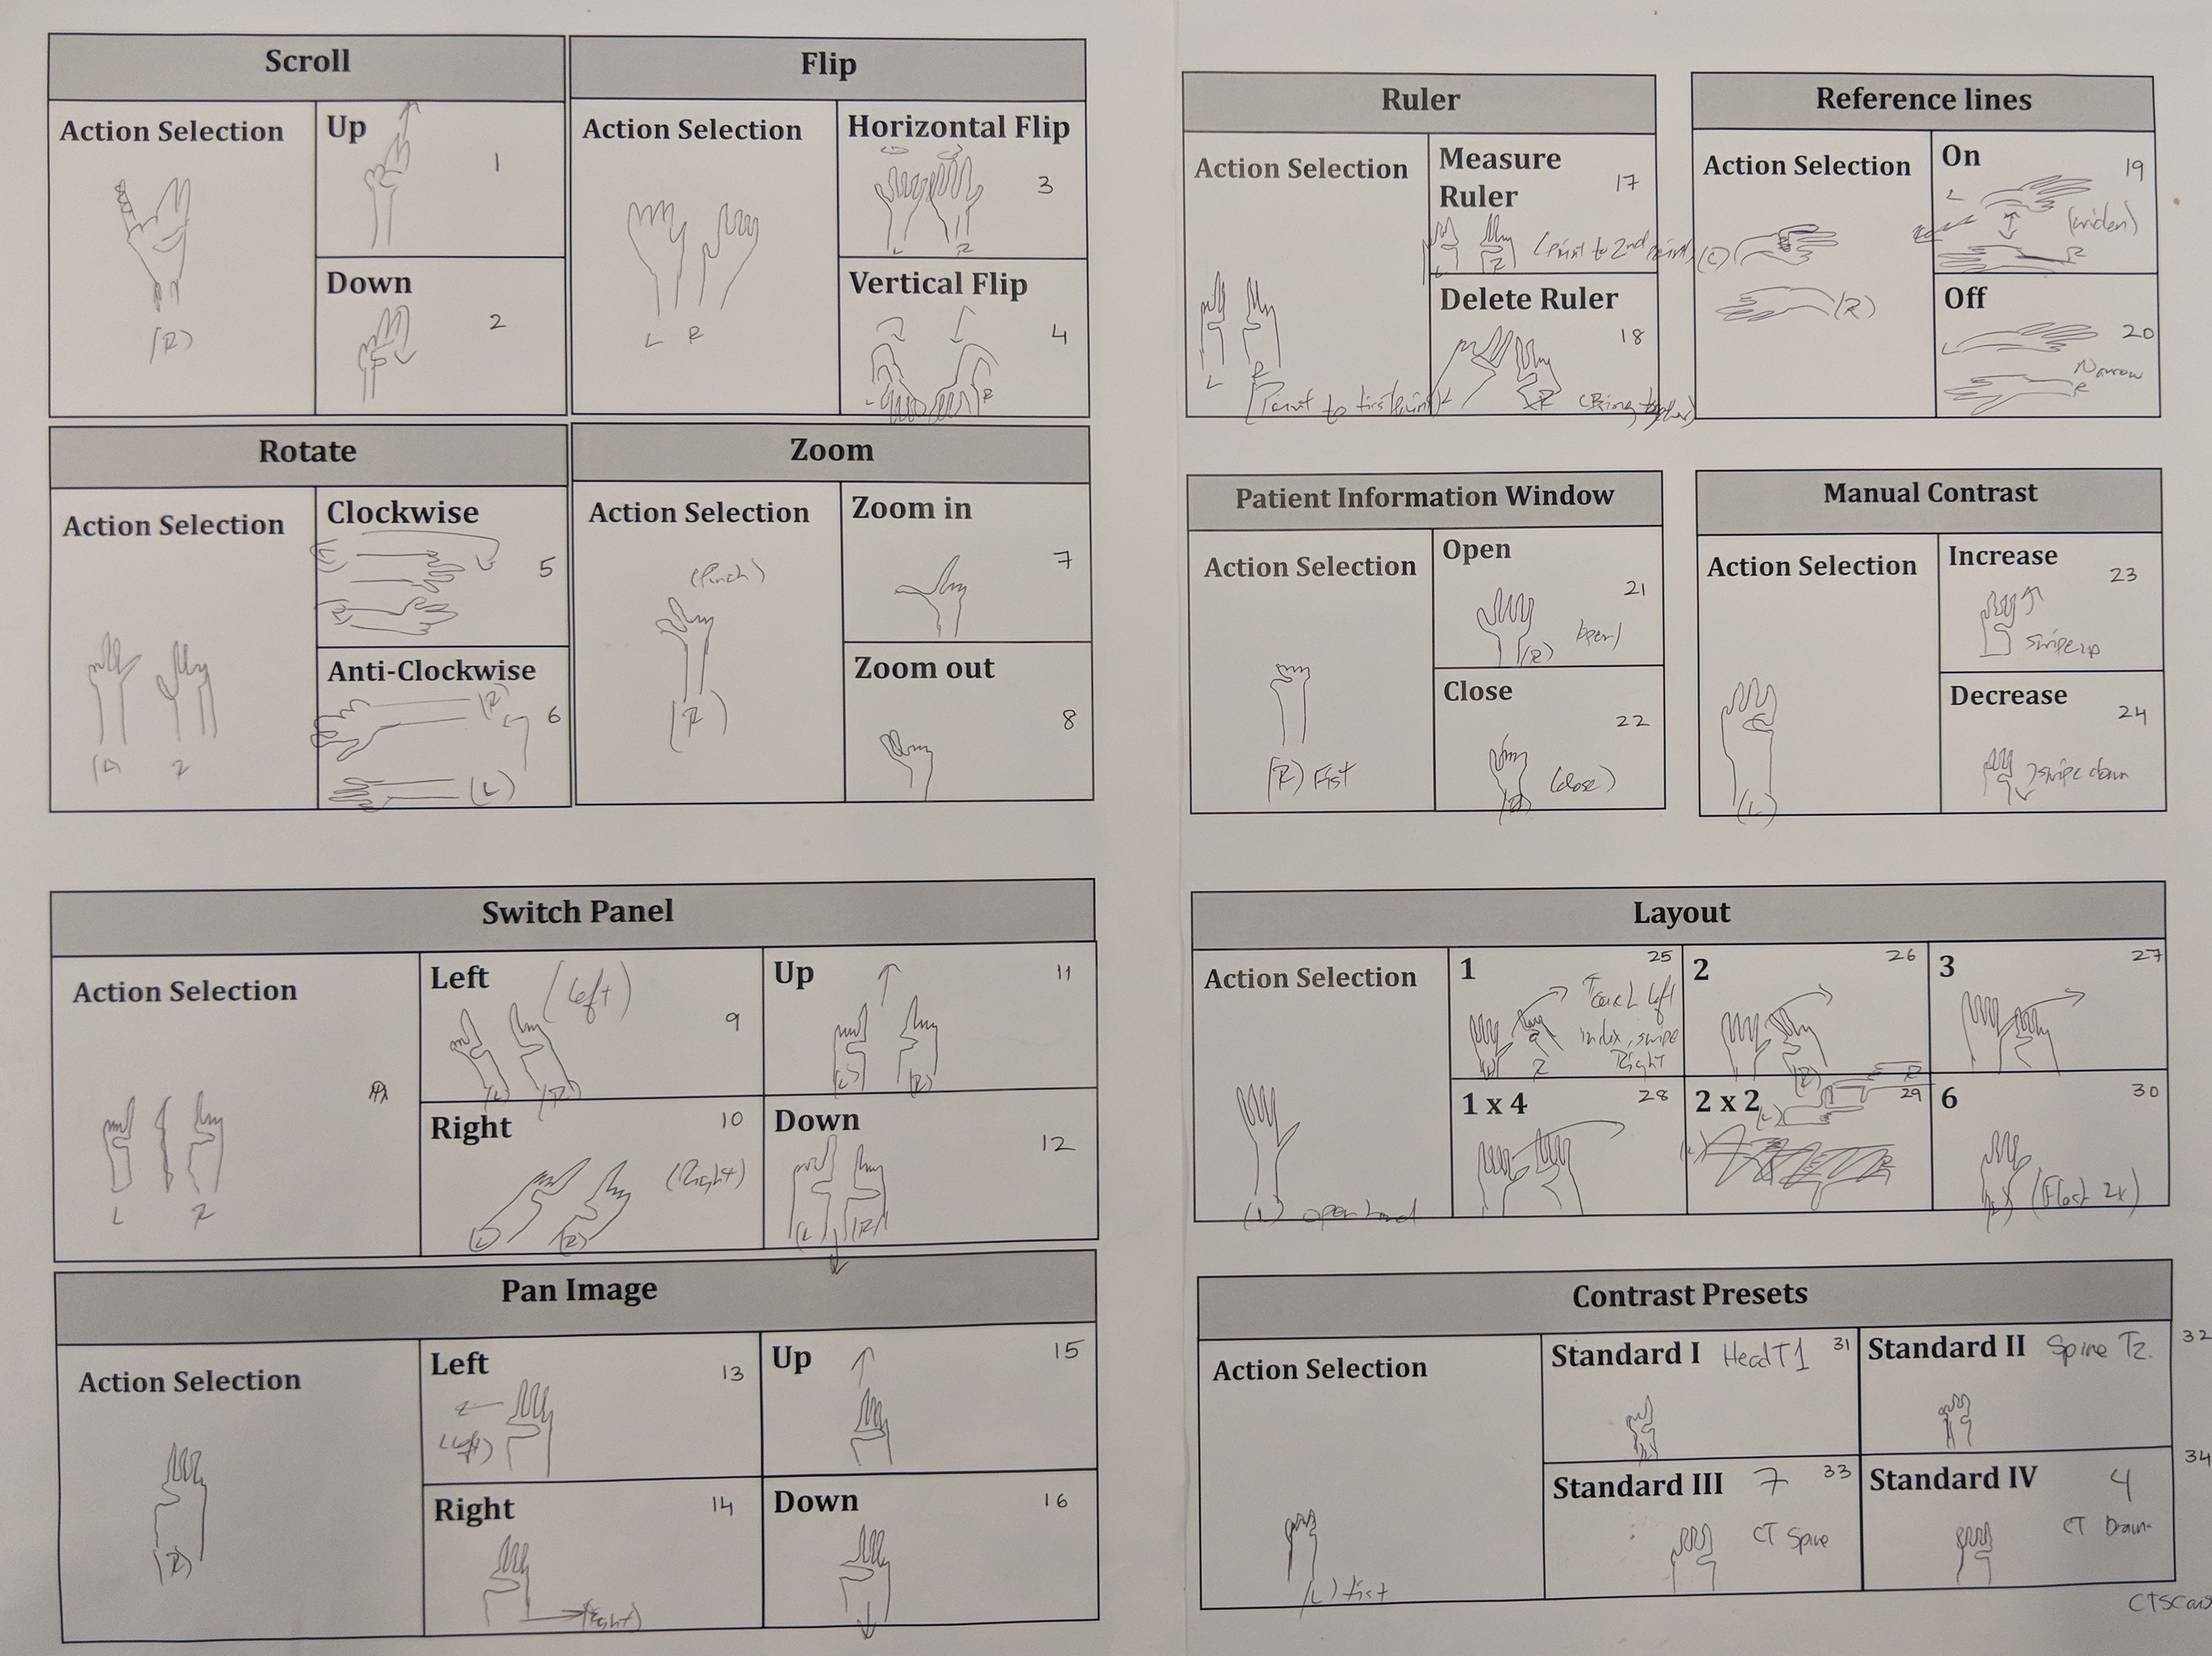 Scroll
Action Selection
(R)
Up
1
Down
2
Flip
Action Selection
L R
Horizontal Flip
3
L R
Vertical Flip
4
L R
Rotate
Action Selection
(L) R
Clockwise
5
Anti-Clockwise
(R)
6
(L)
Zoom
Action Selection
(Pinch)
(R)
Zoom in
7
Zoom out
8
Switch Panel
Action Selection
L R
Left
(left)
9
(L) (R)
Right
10
(Right)
(L) (R)
Up
11
(L) (R)
Down
12
(L) (R)
Pan Image
Action Selection
(R)
Left
13
(Left)
Right
14
(Right)
Up
15
Down
16
Ruler
Action Selection
L R
(Point to first point)
Measure
Ruler
17
L R
(Point to 2nd point)
Delete Ruler
18
L R
(Bring together)
Reference lines
Action Selection
(L)
(R)
On
19
L
(widen)
R
Off
20
L
Narrow
R
Patient Information Window
Action Selection
(R) Fist
Open
21
(R)
Close
22
(close)
(R)
Manual Contrast
Action Selection
(L)
Increase
23
swipe up
Decrease
24
swipe down
Layout
Action Selection
(L) open hand
1
25
left
index, swipe
Right
R
2
26
(R)
3
27
1 x 4
28
2 x 2
29
(L)
R
6
30
2x)
Contrast Presets
Action Selection
(L) fist
Standard I Head T1
31
Standard II Spine T2.
32
Standard III 7
33
CT Spine
Standard IV 4
34
CT Brain